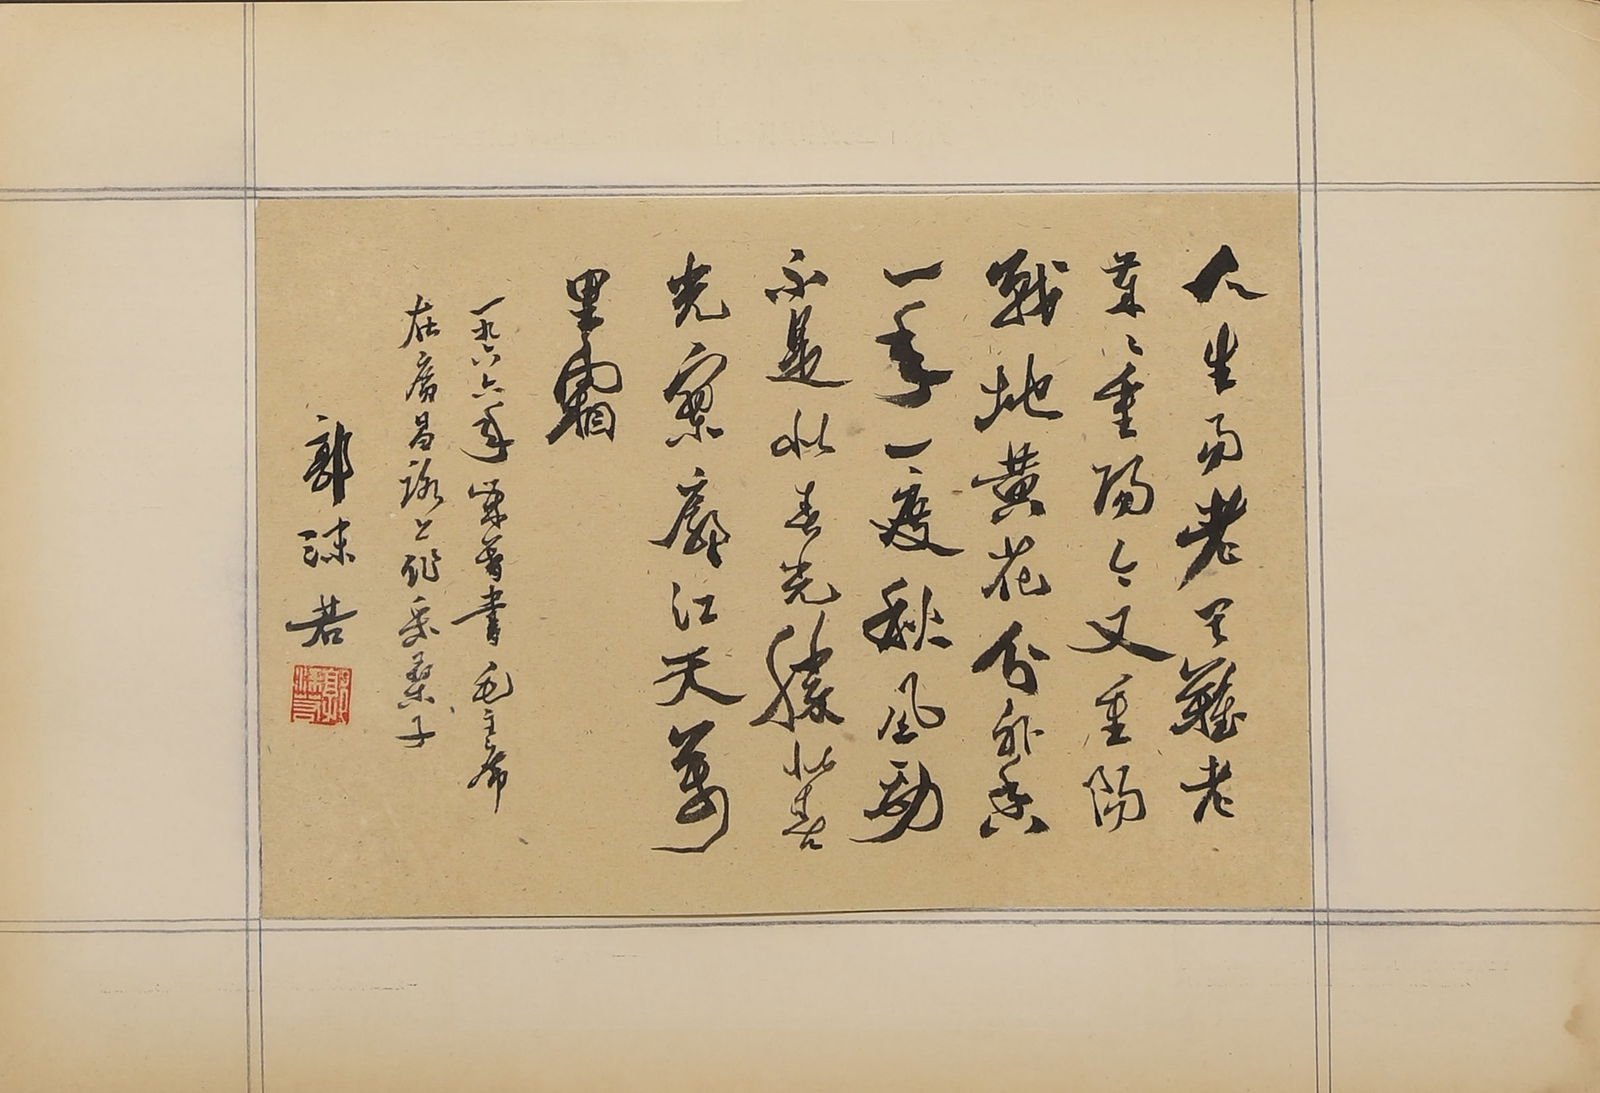 人生易老天難老
歲〻重陽今又重陽
戰地黃花分外香
一年一度秋風勁
不是似春光勝似春
光寥廓江天萬
里霜
一九六六年書毛主席
在廣昌路上作采桑子
郭沫若